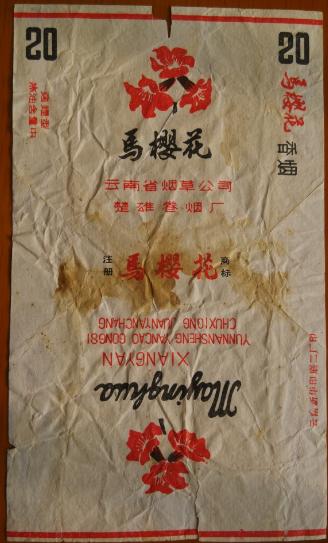 20
20
馬櫻花
馬櫻花 香烟
烤烟型
焦油含量中
云南省烟草公司
楚雄卷烟厂
注册
馬櫻花
商标
YUNNANSHENG YANCAO GONGSI
CHUXIONG JUANYANCHANG
XIANGYAN
Mayinghua